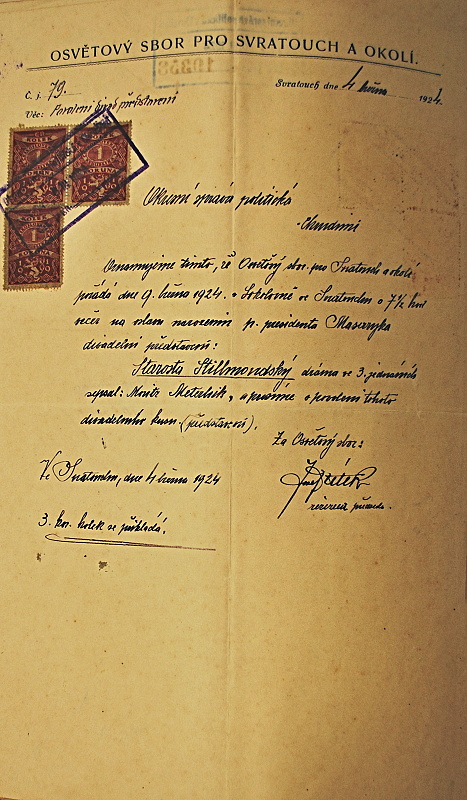 OSVĚTOVÝ SBOR PRO SVRATOUCH A OKOLÍ.
Č. j. 79.
Svratouch dne 4 března 1924.
Věc: Povolení představení
Okresní správa politická
Chrudimi
Oznamujeme tímto, že Osvětový sbor pro Svratouch a okolí
pořádá dne 9. března 1924 v Sokolovně ve Svratouchu o 7½ hod
večer na oslavu narozenin p. presidenta Masaryka
divadelní představení:
Starosta Stillmondský dráma ve 3. jednáních
sepsal: Moric Meterlink, a prosíme o povolení tohoto
divadelního kusu. (představení).
Za Osvětový sbor:
Ve Svratouchu, dne 4 března 1924
3. kor. kolek se přikládá.